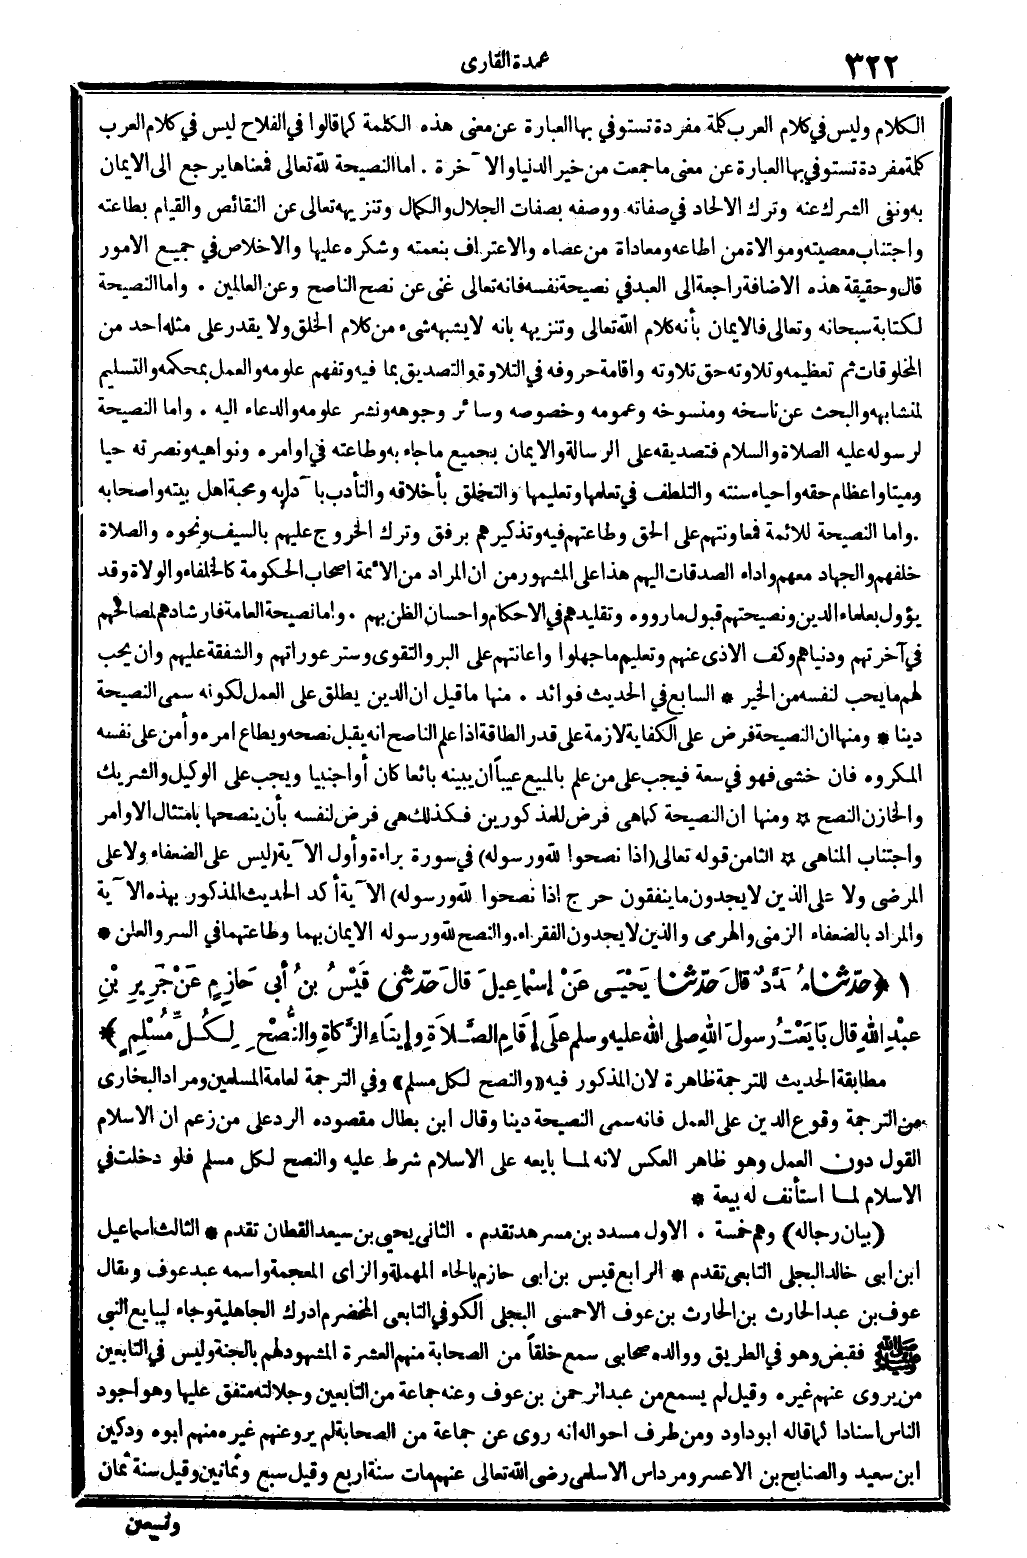 ٣٢٢
عمدة القارى
الكلام وليس في كلام العرب كلمة مفردة تستوفي بها العبارة عن معنى هذه الكلمة كما قالوا في الفلاح ليس في كلام العرب
كلمة مفردة تستوفي بها العبارة عن معنى ما جمعت من خير الدنيا والآخرة . اما النصيحة لله تعالى فمعناها يرجع الى الايمان
به ونفى الشرك عنه وترك الالحاد في صفاته ووصفه بصفات الجلال والكمال وتنزيهه تعالى عن النقائص والقيام بطاعته
واجتناب معصيته وموالاة من اطاعه ومعاداة من عصاه والاعتراف بنعمته وشكره عليها والاخلاص في جميع الامور
قال وحقيقة هذه الاضافة راجعة الى العبد في نصيحة نفسه فانه تعالى غنى عن نصح الناصح وعن العالمين . واما النصيحة
لكتابة سبحانه وتعالى فالايمان بأنه كلام الله تعالى وتنزيهه بانه لا يشبهه شىء من كلام الخلق ولا يقدر على مثله احد من
المخلوقات ثم تعظيمه وتلاوته حق تلاوته واقامة حروفه في التلاوة والتصديق بما فيه وتفهم علومه والعمل بمحكمه والتسليم
لمتشابهه والبحث عن ناسخه ومنسوخه وعمومه وخصوصه وسائر وجوهه ونشر علومه والدعاء اليه . واما النصيحة
لرسوله عليه الصلاة والسلام فتصديقه على الرسالة والايمان بجميع ما جاء به وطاعته في اوامره ونواهيه ونصرته حيا
وميتا واعظام حقه واحياء سنته والتلطف في تعلمها وتعليمها والتخلق بأخلاقه والتأدب بآدابه ومحبة اهل بيته واصحابه
. واما النصيحة للائمة فمعاونتهم على الحق وطاعتهم فيه وتذكيرهم برفق وترك الخروج عليهم بالسيف ونحوه والصلاة
خلفهم والجهاد معهم واداء الصدقات اليهم هذا على المشهور من ان المراد من الائمة اصحاب الحكومة كالخلفاء والولاة وقد
يؤول بعلماء الدين ونصيحتهم قبول ما رووه وتقليدهم في الاحكام واحسان الظن بهم . واما نصيحة العامة فارشادهم لمصالحهم
في آخرتهم ودنياهم وكف الاذى عنهم وتعليم ما جهلوا واعانتهم على البر والتقوى وستر عوراتهم والشفقة عليهم وان يحب
لهم ما يحب لنفسه من الخير * السابع في الحديث فوائد . منها ما قيل ان الدين يطلق على العمل لكونه سمى النصيحة
دينا * ومنها ان النصيحة فرض على الكفاية لازمة على قدر الطاقة اذا علم الناصح انه يقبل نصحه ويطاع امره وأمن على نفسه
المكروه فان خشى فهو في سعة فيجب على من علم بالمبيع عيباً ان يبينه بائعا كان أو اجنبيا ويجب على الوكيل والشريك
والخازن النصح * ومنها ان النصيحة كما هى فرض للمذكورين فكذلك هى فرض لنفسه بأن ينصحها بامتثال الاوامر
واجتناب المناهى * الثامن قوله تعالى (اذا نصحوا لله ورسوله) في سورة براءة وأول الآية (ليس على الضعفاء ولا على
المرضى ولا على الذين لا يجدون ما ينفقون حرج اذا نصحوا لله ورسوله) الآية أكد الحديث المذكور بهذه الآية
والمراد بالضعفاء الزمنى والهرمى والذين لا يجدون الفقراء. والنصح لله ورسوله الايمان بهما وطاعتهما في السر والعلن *
١ ﴿حَدَّثَنَا مُسَدَّدٌ قَالَ حَدَّثَنَا يَحْيَى عَنْ إِسْمَاعِيلَ قَالَ حَدَّثَنِي قَيْسُ بنُ أبى حَازِمٍ عَنْ جَرِيرِ بْنِ
عَبْدِ اللهِ قال بَايَعْتُ رسولَ اللهِ صلى الله عليه وسلم عَلَى إقَامِ الصَّلاَةِ وإيتَاءِ الزَّكَاةِ والنُّصْحِ لِكُلِّ مُسْلِمٍ﴾
مطابقة الحديث للترجمة ظاهرة لان المذكور فيه «والنصح لكل مسلم» وفي الترجمة لعامة المسلمين ومراد البخارى
من الترجمة وقوع الدين على العمل فانه سمى النصيحة دينا وقال ابن بطال مقصوده الرد على من زعم ان الاسلام
القول دون العمل وهو ظاهر العكس لانه لما بايعه على الاسلام شرط عليه والنصح لكل مسلم فلو دخلت في
الاسلام لما استأنف له بيعة *
(بيان رجاله) وهم خمسة . الاول مسدد بن مسرهد تقدم . الثانى يحيى بن سعيد القطان تقدم * الثالث اسماعيل
ابن أبى خالد البجلى التابعى تقدم * الرابع قيس بن ابى حازم بالحاء المهملة والزاى المعجمة واسمه عبد عوف ويقال
عوف بن عبد الحارث بن الحارث بن عوف الاحمسى البجلى الكوفي التابعى المخضرم ادرك الجاهلية وجاء ليبايع النبي
ﷺ فقبض وهو في الطريق ووالده صحابى سمع خلقاً من الصحابة منهم العشرة المشهود لهم بالجنة وليس في التابعين
من يروى عنهم غيره وقيل لم يسمع من عبد الرحمن بن عوف وعنه جماعة من التابعين وجلالته متفق عليها وهو أجود
الناس اسنادا كما قاله ابو داود ومن طرف احواله انه روى عن جماعة من الصحابة لم يرو عنهم غيره منهم ابوه ودكين
ابن سعيد والصنابح بن الاعسر ومرداس الاسلمى رضى الله تعالى عنهم مات سنة اربع وقيل سبع وثمانين وقيل سنة ثمان
وتسعين